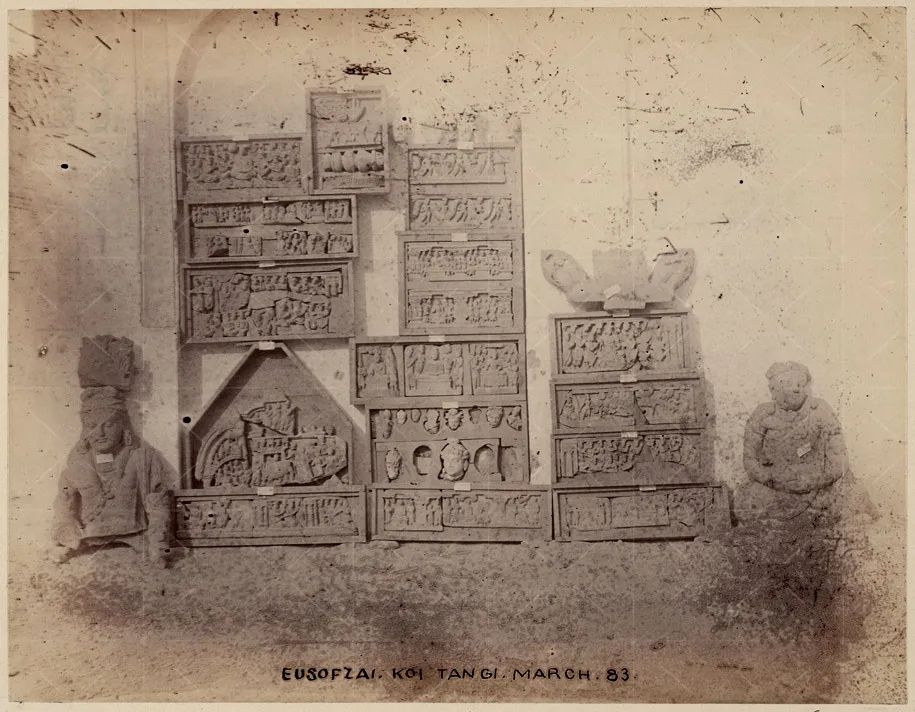 EUSOFZAI. KOI TANGI. MARCH. 83.